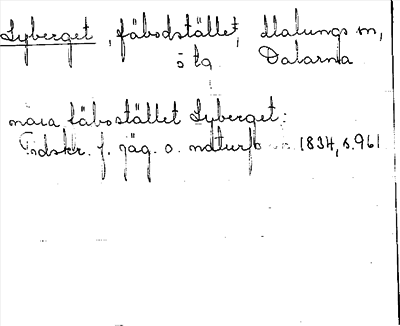 Lyberget, fäbodstället, Malungs sn,
ö ta Dalarna
nära fäbostället Lyberget:
Tidskr. f. jäg. o. naturf. 1834, s. 961